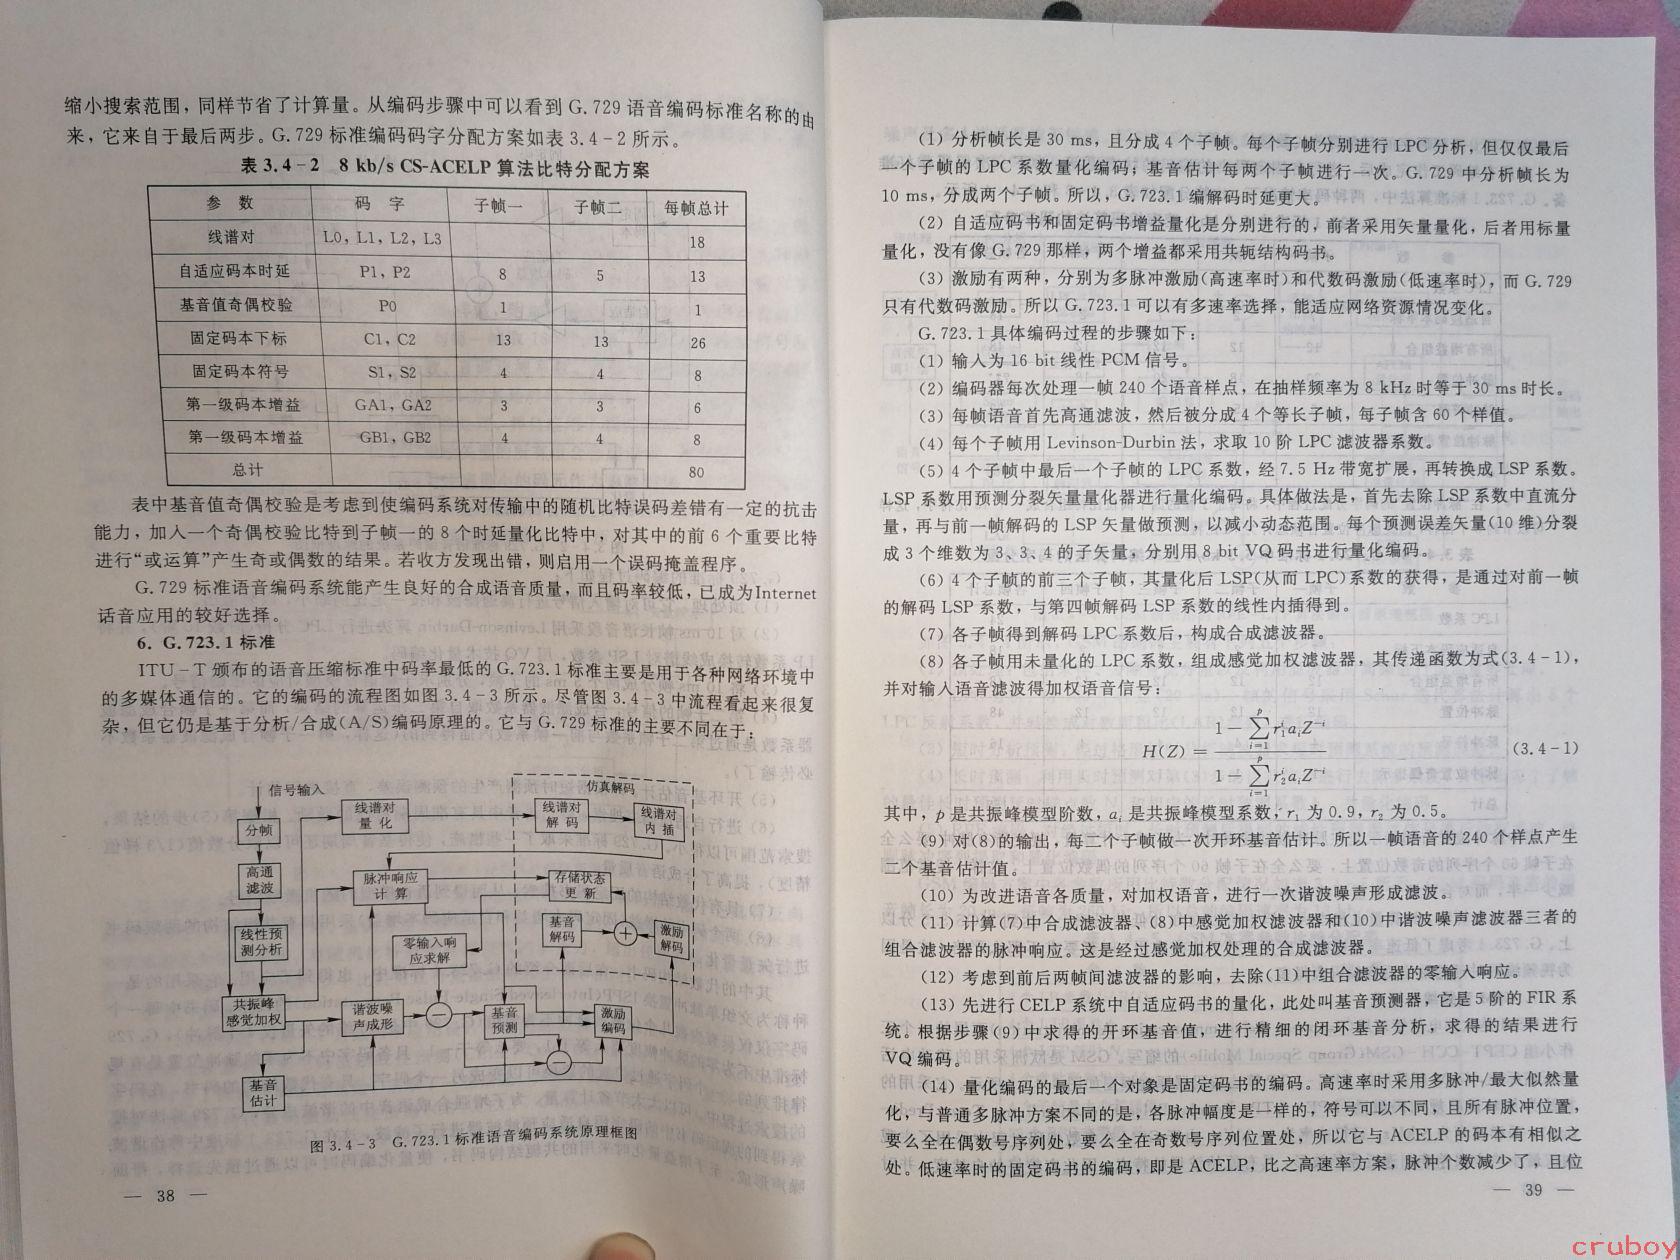 缩小搜索范围，同样节省了计算量。从编码步骤中可以看到 G.729 语音编码标准名称的由
来，它来自于最后两步。G.729 标准编码码字分配方案如表 3.4-2 所示。
表 3.4-2 8 kb/s CS-ACELP 算法比特分配方案
参 数 码 字 子帧一 子帧二 每帧总计
线谱对 L0，L1，L2，L3 18
自适应码本时延 P1，P2 8 5 13
基音值奇偶校验 P0 1 1
固定码本下标 C1，C2 13 13 26
固定码本符号 S1，S2 4 4 8
第一级码本增益 GA1，GA2 3 3 6
第一级码本增益 GB1，GB2 4 4 8
总计 80
表中基音值奇偶校验是考虑到使编码系统对传输中的随机比特误码差错有一定的抗击
能力，加入一个奇偶校验比特到子帧一的 8 个时延量化比特中，对其中的前 6 个重要比特
进行“或运算”产生奇或偶数的结果。若收方发现出错，则启用一个误码掩盖程序。
G.729 标准语音编码系统能产生良好的合成语音质量，而且码率较低，已成为Internet
话音应用的较好选择。
6. G.723.1 标准
ITU-T 颁布的语音压缩标准中码率最低的 G.723.1 标准主要是用于各种网络环境中
的多媒体通信的。它的编码的流程图如图 3.4-3 所示。尽管图 3.4-3 中流程看起来很复
杂，但它仍是基于分析/合成(A/S)编码原理的。它与 G.729 标准的主要不同在于：
信号输入
仿真解码
分帧
线谱对
量 化
线谱对
解 码
线谱对
内 插
高通
滤波
脉冲响应
计 算
存储状态
更 新
线性预
测分析
零输入响
应求解
基音
解码
激励
解码
共振峰
感觉加权
谐波噪
声成形
基音
预测
激励
编码
基音
估计
图 3.4-3 G.723.1 标准语音编码系统原理框图
— 38 —
(1) 分析帧长是 30 ms，且分成 4 个子帧。每个子帧分别进行 LPC 分析，但仅仅最后
一个子帧的 LPC 系数量化编码；基音估计每两个子帧进行一次。G.729 中分析帧长为
10 ms，分成两个子帧。所以，G.723.1 编解码时延更大。
(2) 自适应码书和固定码书增益量化是分别进行的，前者采用矢量量化，后者用标量
量化，没有像 G.729 那样，两个增益都采用共轭结构码书。
(3) 激励有两种，分别为多脉冲激励(高速率时)和代数码激励(低速率时)，而 G.729
只有代数码激励。所以 G.723.1 可以有多速率选择，能适应网络资源情况变化。
G.723.1 具体编码过程的步骤如下：
(1) 输入为 16 bit 线性 PCM 信号。
(2) 编码器每次处理一帧 240 个语音样点，在抽样频率为 8 kHz 时等于 30 ms 时长。
(3) 每帧语音首先高通滤波，然后被分成 4 个等长子帧，每子帧含 60 个样值。
(4) 每个子帧用 Levinson-Durbin 法，求取 10 阶 LPC 滤波器系数。
(5) 4 个子帧中最后一个子帧的 LPC 系数，经 7.5 Hz 带宽扩展，再转换成 LSP 系数。
LSP 系数用预测分裂矢量量化器进行量化编码。具体做法是，首先去除 LSP 系数中直流分
量，再与前一帧解码的 LSP 矢量做预测，以减小动态范围。每个预测误差矢量(10 维)分裂
成 3 个维数为 3、3、4 的子矢量，分别用 8 bit VQ 码书进行量化编码。
(6) 4 个子帧的前三个子帧，其量化后 LSP(从而 LPC)系数的获得，是通过对前一帧
的解码 LSP 系数，与第四帧解码 LSP 系数的线性内插得到。
(7) 各子帧得到解码 LPC 系数后，构成合成滤波器。
(8) 各子帧用未量化的 LPC 系数，组成感觉加权滤波器，其传递函数为式(3.4-1)，
并对输入语音滤波得加权语音信号：
H(Z) = (1 - ∑_{i=1}^{p} r_1^i a_i Z^{-i}) / (1 - ∑_{i=1}^{p} r_2^i a_i Z^{-i}) (3.4-1)
其中，p 是共振峰模型阶数，a_i 是共振峰模型系数，r_1 为 0.9，r_2 为 0.5。
(9) 对(8)的输出，每二个子帧做一次开环基音估计。所以一帧语音的 240 个样点产生
二个基音估计值。
(10) 为改进语音各质量，对加权语音，进行一次谐波噪声形成滤波。
(11) 计算(7)中合成滤波器、(8)中感觉加权滤波器和(10)中谐波噪声滤波器三者的
组合滤波器的脉冲响应。这是经过感觉加权处理的合成滤波器。
(12) 考虑到前后两帧间滤波器的影响，去除(11)中组合滤波器的零输入响应。
(13) 先进行 CELP 系统中自适应码书的量化，此处叫基音预测器，它是 5 阶的 FIR 系
统。根据步骤(9)中求得的开环基音值，进行精细的闭环基音分析，求得的结果进行
VQ 编码。
(14) 量化编码的最后一个对象是固定码书的编码。高速率时采用多脉冲/最大似然量
化，与普通多脉冲方案不同的是，各脉冲幅度是一样的，符号可以不同，且所有脉冲位置，
要么全在偶数号序列处，要么全在奇数号序列位置处，所以它与 ACELP 的码本有相似之
处。低速率时的固定码书的编码，即是 ACELP，比之高速率方案，脉冲个数减少了，且位
— 39 —
cruboy